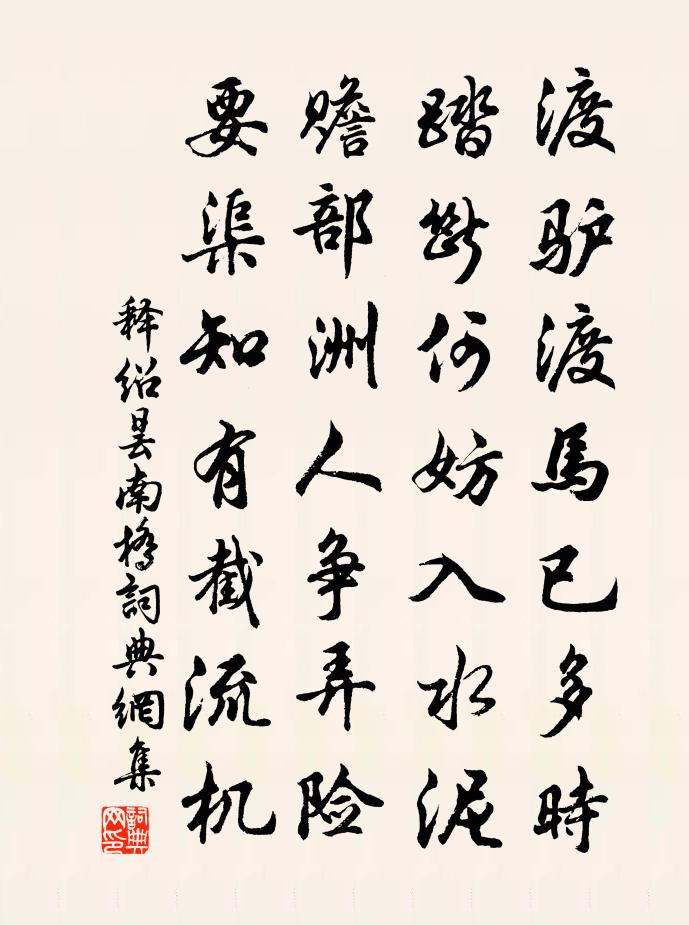 渡驴渡馬已多時
踏断何妨入水泥
赡部洲人争弄险
要渠知有截流机
释绍昙南橋詞典網集
詞典網印